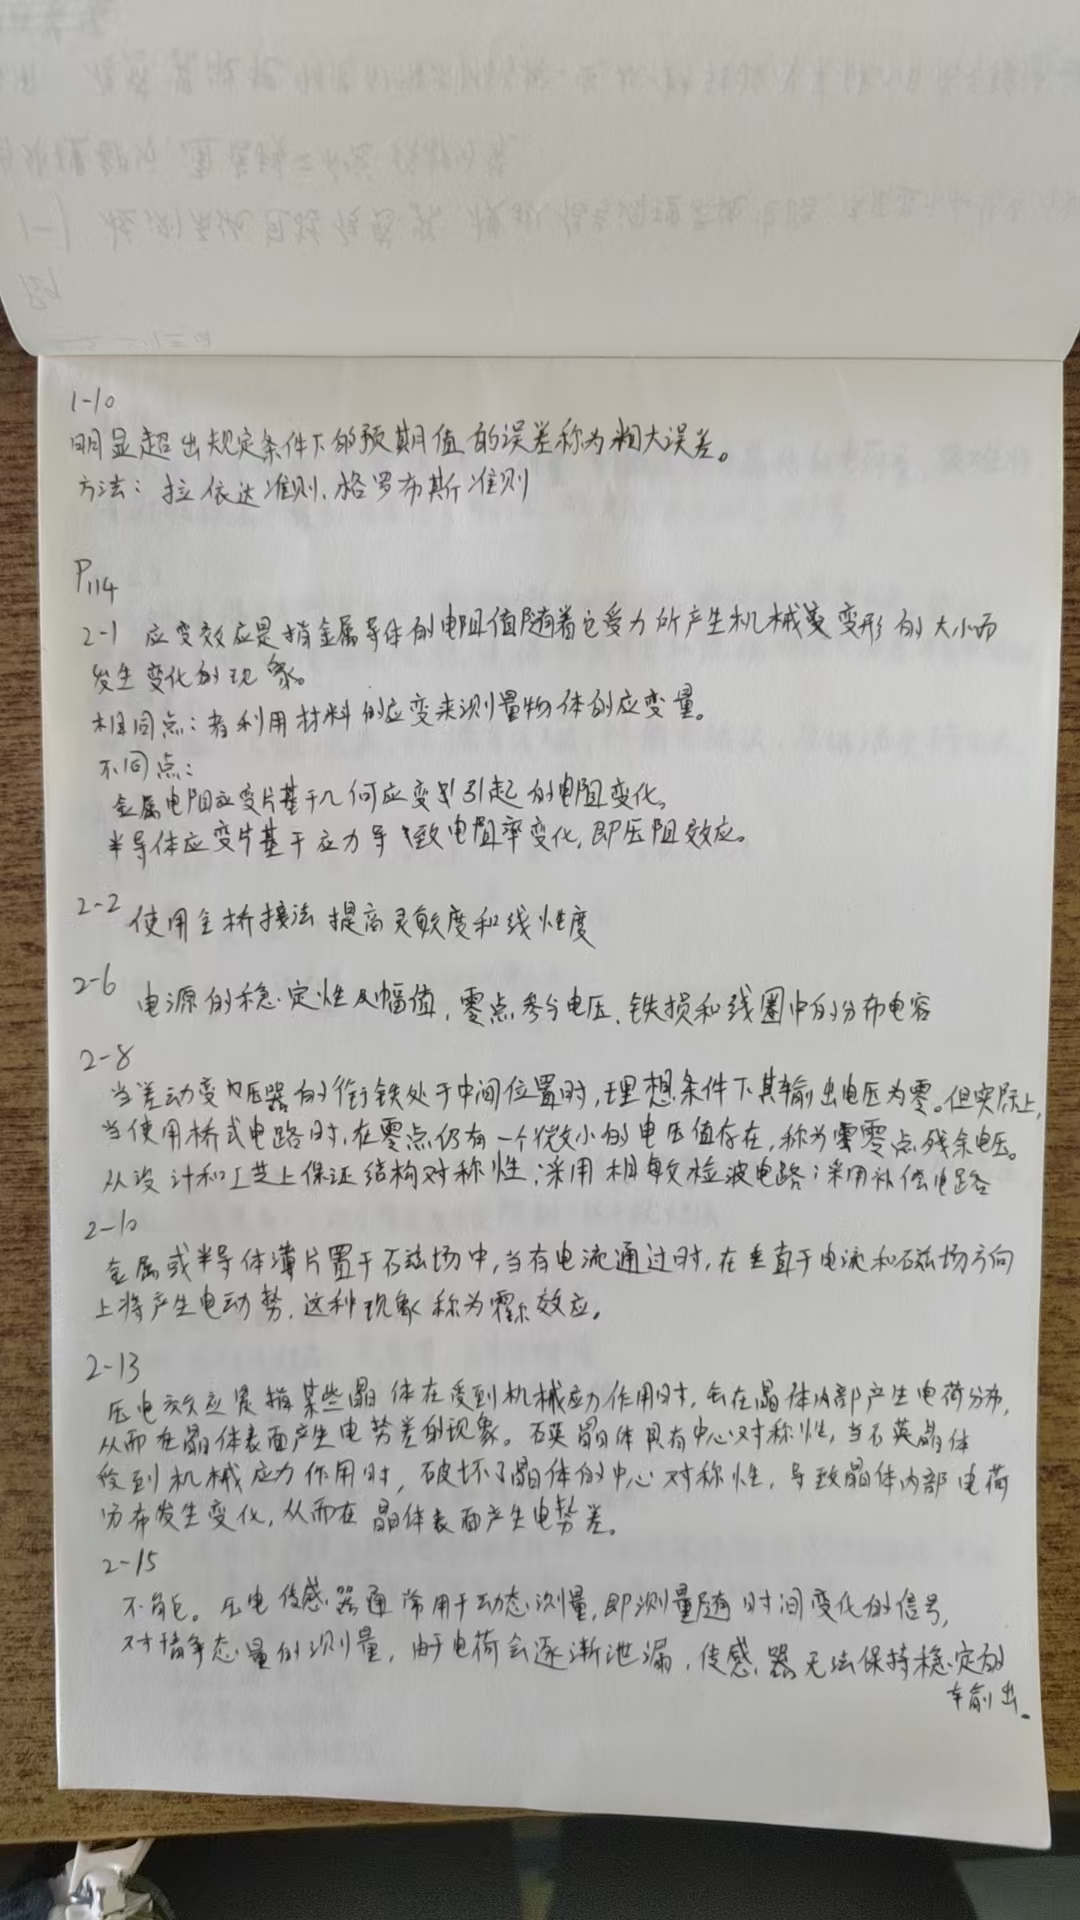 1-10
明显超出规定条件下的预期值的误差称为粗大误差。
方法：拉依达准则、格罗布斯准则
P114
2-1 应变效应是指金属导体的电阻值随着它受力所产生机械变形的大小而
发生变化的现象。
相同点：都利用材料的应变来测量物体的应变量。
不同点：
金属电阻应变片基于几何应变引起的电阻变化，
半导体应变片基于应力导致电阻率变化，即压阻效应。
2-2 使用全桥接法提高灵敏度和线性度
2-6 电源的稳定性及幅值，零点参与电压、铁损和线圈中的分布电容
2-8
当差动变压器的衔铁处于中间位置时，理想条件下其输出电压为零。但实际上，
当使用桥式电路时，在零点仍有一个微小的电压值存在，称为零点残余电压。
从设计和工艺上保证结构对称性；采用相敏检波电路；采用补偿电路
2-10
金属或半导体薄片置于磁场中，当有电流通过时，在垂直于电流和磁场方向
上将产生电动势，这种现象称为霍尔效应。
2-13
压电效应是指某些晶体在受到机械应力作用时，会在晶体内部产生电荷分布，
从而在晶体表面产生电势差的现象。石英晶体具有中心对称性，当石英晶体
受到机械应力作用时，破坏了晶体的中心对称性，导致晶体内部电荷
分布发生变化，从而在晶体表面产生电势差。
2-15
不能。压电传感器通常用于动态测量，即测量随时间变化的信号，
对静态量的测量，由于电荷会逐渐泄漏，传感器无法保持稳定的
输出。